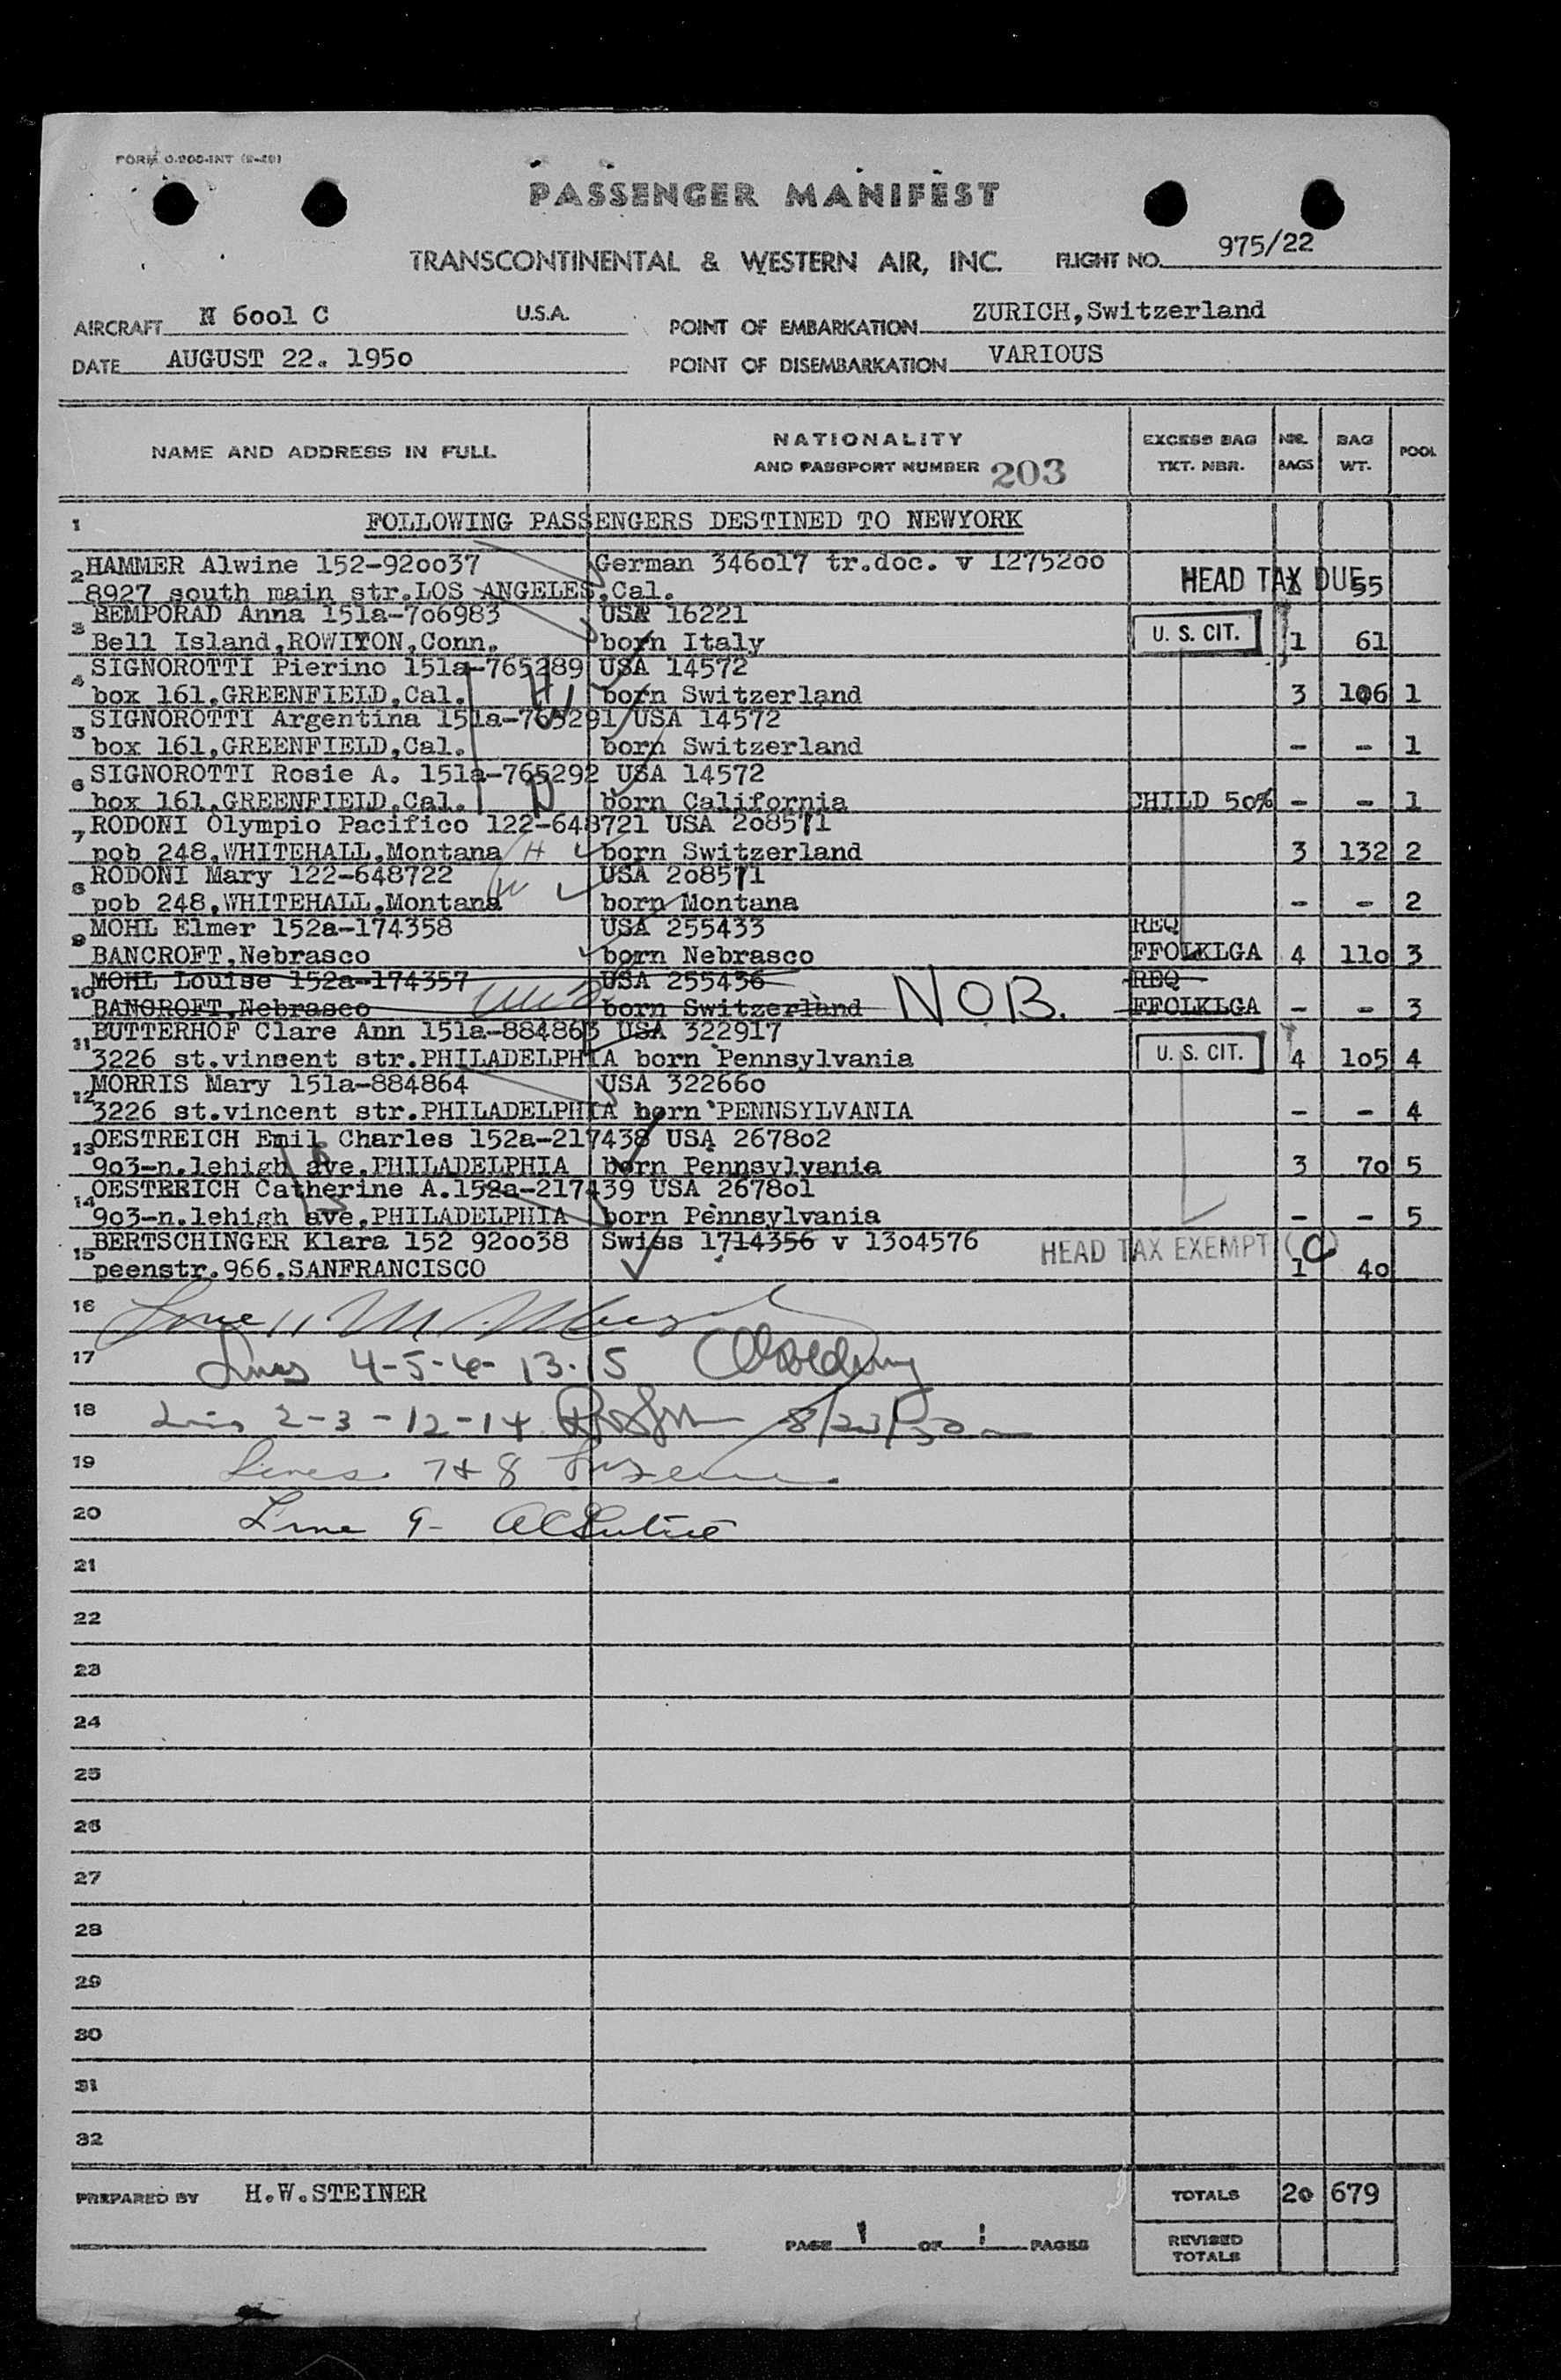 FORM O-900-INT (2-49)
PASSENGER MANIFEST
TRANSCONTINENTAL & WESTERN AIR, INC. FLIGHT NO. 975/22
AIRCRAFT N 6oo1 C U.S.A. POINT OF EMBARKATION ZURICH,Switzerland
DATE AUGUST 22. 195o POINT OF DISEMBARKATION VARIOUS
NAME AND ADDRESS IN FULL NATIONALITY AND PASSPORT NUMBER 203 EXCESS BAG TKT. NBR. NR. BAGS BAG WT. POOL
1 FOLLOWING PASSENGERS DESTINED TO NEWYORK
2 HAMMER Alwine 152-92oo37 German 346o17 tr.doc. v 12752oo
8927 south main str.LOS ANGELES.Cal. HEAD TAX DUE 1 55
3 BEMPORAD Anna 151a-7o6983 USA 16221
Bell Island,ROWITON,Conn. born Italy U. S. CIT. 1 61
4 SIGNOROTTI Pierino 151a-765289 USA 14572
box 161,GREENFIELD,Cal. H born Switzerland 3 106 1
5 SIGNOROTTI Argentina 151a-765291 USA 14572
box 161,GREENFIELD,Cal. W born Switzerland - - 1
6 SIGNOROTTI Rosie A. 151a-765292 USA 14572
box 161,GREENFIELD,Cal. D born California CHILD 5o% - - 1
7 RODONI Olympio Pacifico 122-648721 USA 2o8571
pob 248,WHITEHALL,Montana H born Switzerland 3 132 2
8 RODONI Mary 122-648722 USA 2o8571
pob 248,WHITEHALL,Montana W born Montana - - 2
9 MOHL Elmer 152a-174358 USA 255433 REQ
BANCROFT,Nebrasco born Nebrasco FFOLKLGA 4 11o 3
10 MOHL Louise 152a-174357 USA 255436 REQ
BANCROFT,Nebrasco born Switzerland NOB. FFOLKLGA - - 3
11 BUTTERHOF Clare Ann 151a-884863 USA 322917
3226 st.vinsent str.PHILADELPHIA born Pennsylvania U. S. CIT. 4 1o5 4
12 MORRIS Mary 151a-884864 USA 32266o
3226 st.vincent str.PHILADELPHIA born PENNSYLVANIA - - 4
13 OESTREICH Emil Charles 152a-217438 USA 2678o2
9o3-n.lehigh ave.PHILADELPHIA H born Pennsylvania 3 7o 5
14 OESTREICH Catherine A.152a-217439 USA 2678o1
9o3-n.lehigh ave.PHILADELPHIA W born Pennsylvania - - 5
15 BERTSCHINGER Klara 152 92oo38 Swiss 1714356 v 13o4576
peenstr.966.SANFRANCISCO HEAD TAX EXEMPT (C) 1 4o
16 Line 11
17 Lines 4-5-6-13-15
18 Lines 2-3-12-14 8/23/50
19 Lines 7 & 8
20 Line 9-
21
22
23
24
25
26
27
28
29
30
31
32
PREPARED BY H.W.STEINER TOTALS 2o 679
PAGE 1 OF 1 PAGES REVISED TOTALS